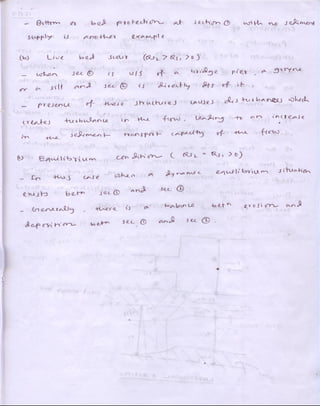 - Bottom or bed protection at section ① with no sediment
supply is another example
(b) Live bed scour (Qs₂ > Qs₁ > 0)
- when sec ① is u/s of a bridge pier, a groyne
or a sill and sec ② is directly d/s of it.
- presence of these structures causes disturbances which
creates turbulance in the flow, leading to an increase
in the sediment transport capacity of the flow.
Equilibrium condition ( Qs₂ = Qs₁ > 0)
- In this case when a dynamic equilibrium situation
exists betn sec ① and sec ②
- Generally, there is a balance betn erosion and
deposition betn sec ① and sec ②.